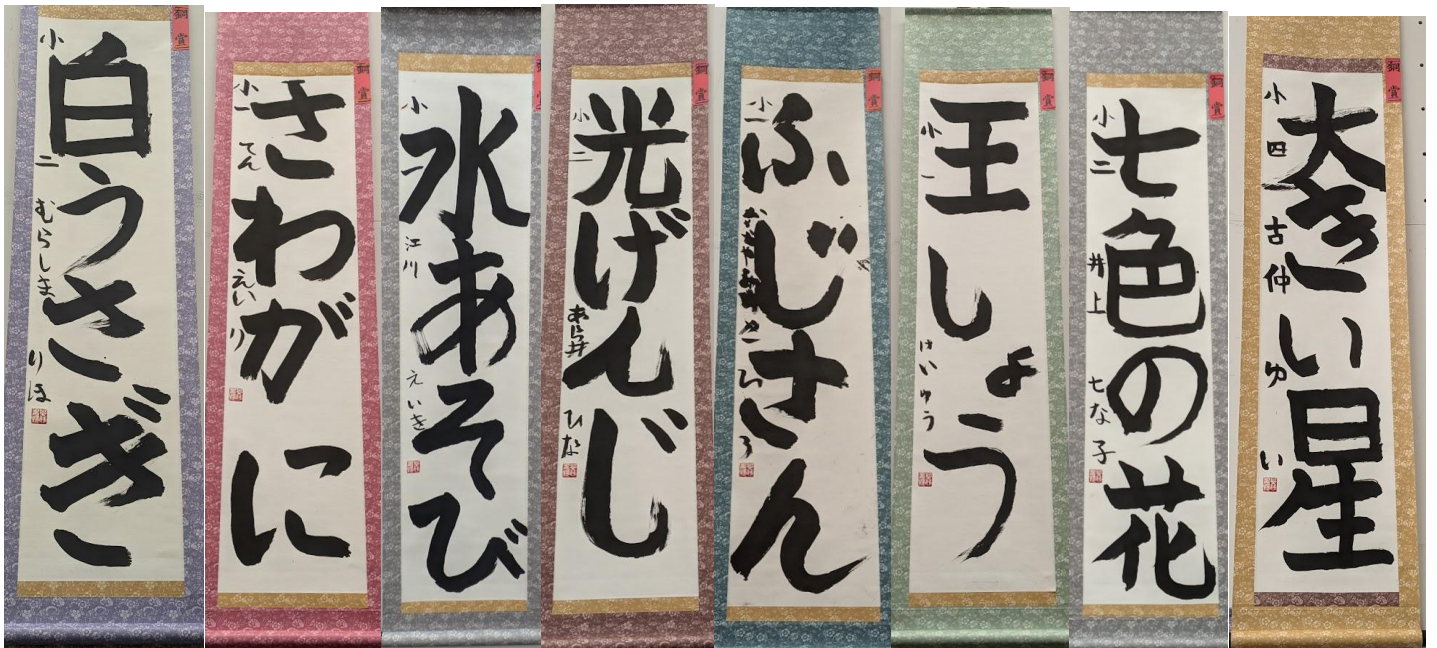 白うさぎ
小二 むらしま りほ
銅賞
さわがに
小一 てん えいり
銅賞
水あそび
小一 江川 えいき
光げんじ
小二 あら井 ひな
銅賞
ふじさん
小一
銅賞
王しょう
小一 けいゆう
銅賞
七色の花
小二 井上 七な子
銅賞
大きい星
小四 古仲 ゆい
銅賞